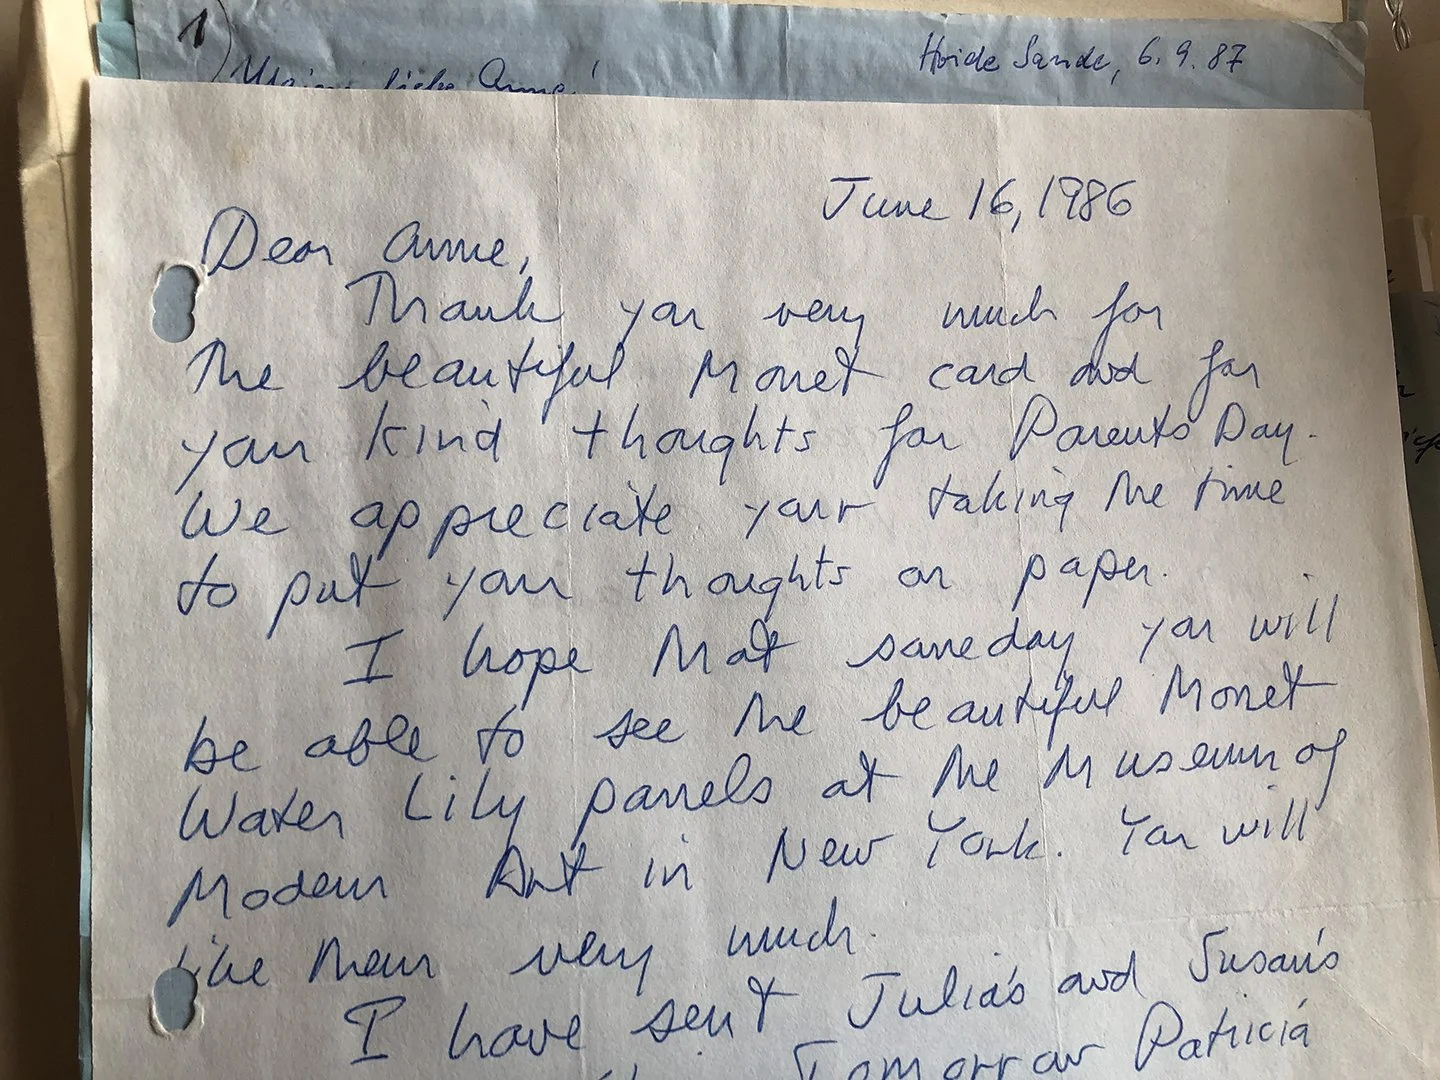 1)
Hvide Sande, 6.9.87
Meine liebe Anne!
June 16, 1986
Dear Anne,
Thank you very much for
the beautiful Monet card and for
your kind thoughts for Parents Day.
We appreciate your taking the time
to put your thoughts on paper.
I hope that someday you will
be able to see the beautiful Monet
Water Lily pannels at the Museum of
Modern Art in New York. You will
like them very much.
I have sent Julia's and Susan's
Tomorrow Patricia's